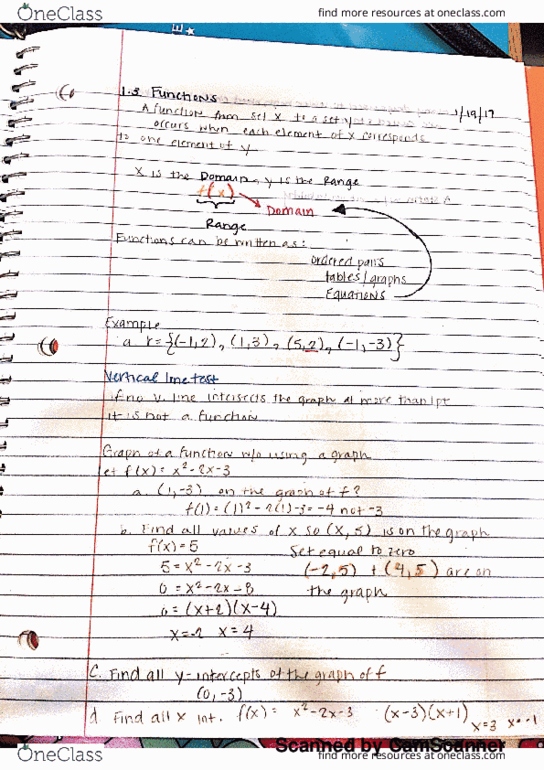 OneClass find more resources at oneclass.com
1.3 Functions 1/19/17
A function from set X to a set y
occurs when each element of X corresponds
to one element of y
X is the Domain, y is the Range
f(x)
Domain
Range
Functions can be written as:
ordered pairs
tables/graphs
Equations
Example
a r = {(-1,2), (1,3), (5,2), (-1,-3)}
Vertical line test
if no v. line intersects the graph at more than 1pt
it is not a function
Graph of a function w/o using a graph
let f(x) = x²-2x-3
a. (1,-3) on the graph of f?
f(1) = (1)²-2(1)-3 = -4 not -3
b. Find all values of x so (x,5) is on the graph
f(x) = 5 Set equal to zero
5 = x²-2x-3 (-2,5) + (4,5) are on
0 = x²-2x-8 the graph
0 = (x+2)(x-4)
x=-2 x=4
C. Find all y-intercepts of the graph of f
(0,-3)
d Find all x int. f(x) = x²-2x-3 (x-3)(x+1) x=3 x=-1
Scanned by CamScanner
OneClass find more resources at oneclass.com